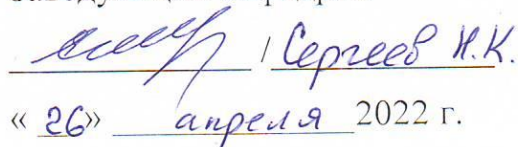 / Сергеев Н.К.
« 26» апреля 2022 г.